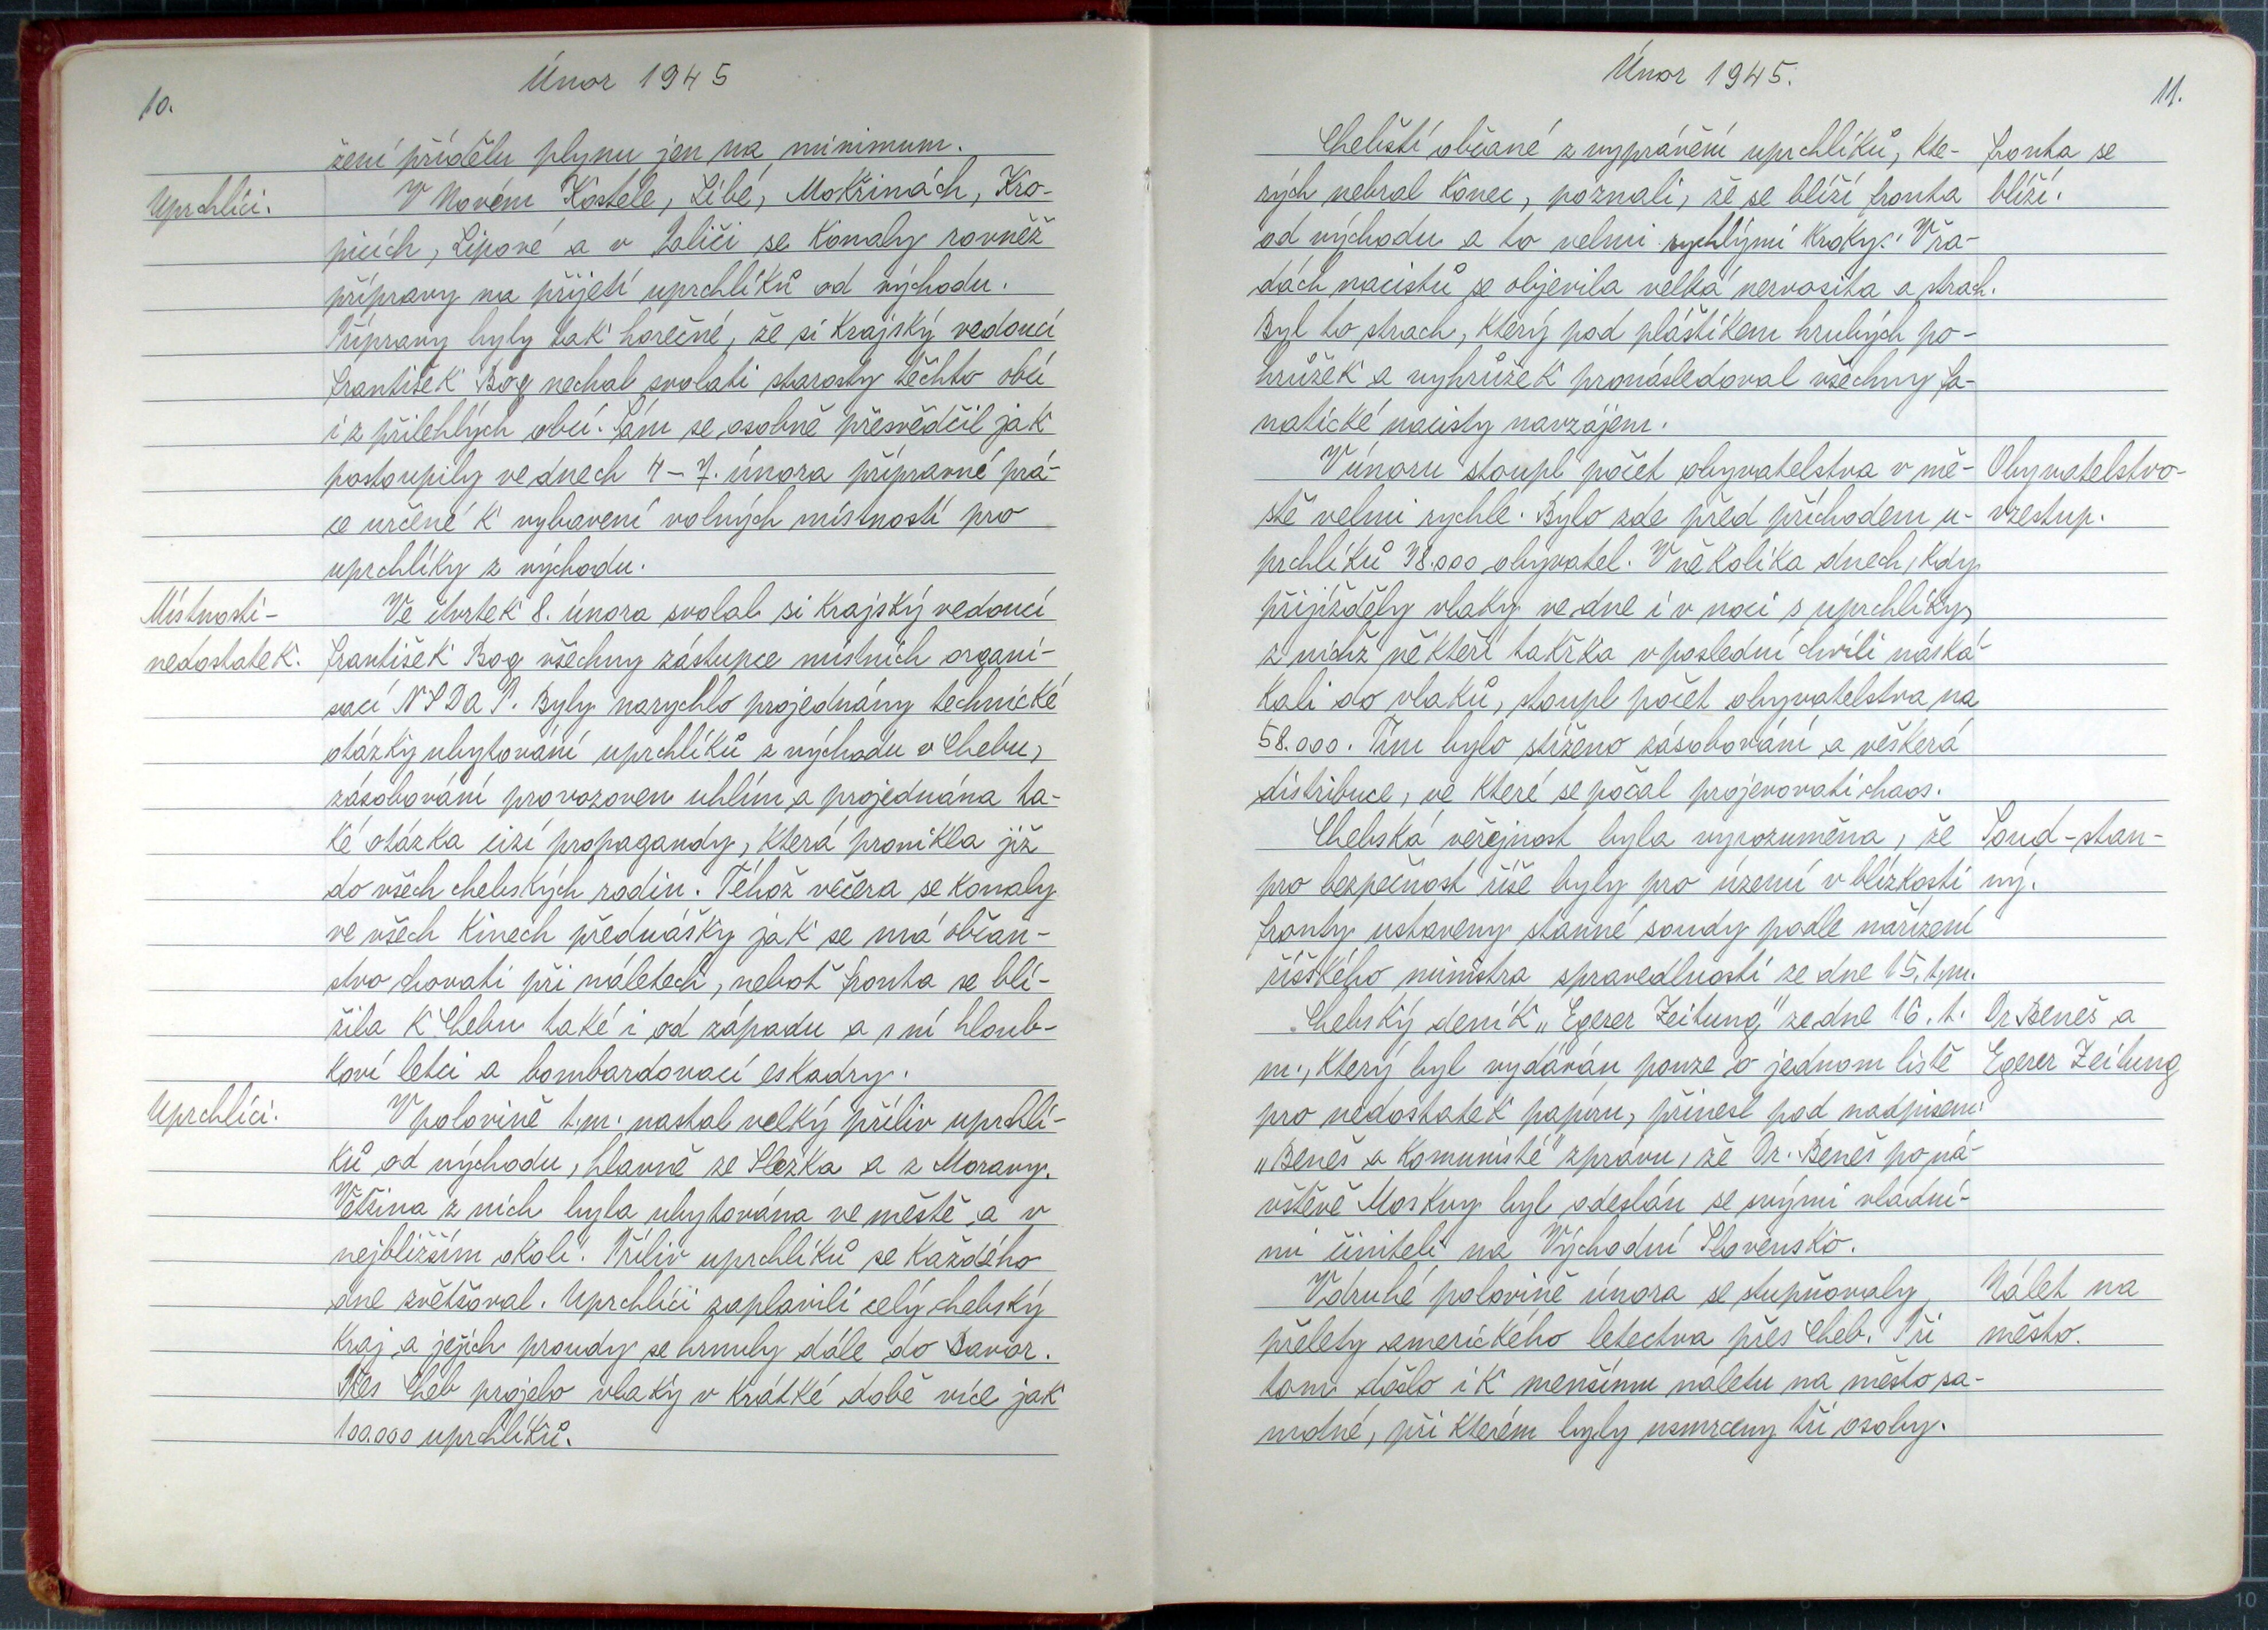 10.
Únor 1945
žení přídělu plynu jen na minimum.
Uprchlíci.
V Novém Kostele, Libé, Mokřinách, Kro-
picích, Lipové a v Saliči se konaly rovněž
přípravy na přijetí uprchlíků od východu.
Přípravy byly tak horečné, že si krajský vedoucí
František Bog nechal svolati starosty těchto obcí
i z přilehlých obcí. Sám se osobně přesvědčil jak
postoupily ve dnech 4-7. února přípravné prá-
ce určené k vybavení volných místností pro
uprchlíky z východu.
Místnosti-
nedostatek.
Ve čtvrtek 8. února svolal si krajský vedoucí
František Bog všechny zástupce místních organi-
sací NSDaP. Byly narychlo projednány technické
otázky ubytování uprchlíků z východu v Chebu,
zásobování provozoven uhlím a projednána ta-
ké otázka cizí propagandy, která pronikla již
do všech chebských rodin. Téhož večera se konaly
ve všech kinech přednášky jak se má občan-
stvo chovati při náletech, neboť fronta se blí-
žila k Chebu také i od západu a s ní hloub-
koví letci a bombardovací eskadry.
Uprchlíci.
V polovině t.m. nastal velký příliv uprchlí-
ků od východu, hlavně ze Slezka a z Moravy.
Většina z nich byla ubytována ve městě a v
nejbližším okolí. Příliv uprchlíků se každého
dne zvětšoval. Uprchlíci zaplavili celý chebský
kraj a jejich proudy se hrnuly dále do Bavor.
Přes Cheb projelo vlaky v krátké době více jak
100.000 uprchlíků.
Únor 1945.
11.
Chebští občané z vyprávění uprchlíků, kte-
rých nebral konec, poznali, že se blíží fronta
od východu a to velmi rychlými kroky. V řa-
dách nacistů se objevila velká nervosita a strach.
Byl to strach, který pod pláštíkem hrubých po-
hrůžek a vyhrůžek pronásledoval všechny fa-
natické nacisty navzájem.
Fronta se
blíží.
V únoru stoupl počet obyvatelstva v mě-
stě velmi rychle. Bylo zde před příchodem u-
prchlíků 38.000 obyvatel. V několika dnech, kdy
přijížděly vlaky ve dne i v noci s uprchlíky,
z nichž někteří takřka v poslední chvíli naská-
kali do vlaků, stoupl počet obyvatelstva na
58.000. Tím bylo stíženo zásobování a veškerá
distribuce, ve které se počal projevovati chaos.
Obyvatelstvo-
vzestup.
Chebská veřejnost byla vyrozuměna, že
pro bezpečnost říše byly pro území v blízkosti
fronty ustaveny stanné soudy podle nařízení
říšského ministra spravedlnosti ze dne 15. t.m.
Soud-stan-
ný.
Chebský deník "Egerer Zeitung" ze dne 16. t.
m., který byl vydáván pouze o jednom listě
pro nedostatek papíru, přinesl pod nadpisem:
"Beneš a komunisté" zprávu, že Dr. Beneš po ná-
vštěvě Moskvy byl odeslán se svými vládní-
mi činiteli na Východní Slovensko.
Dr. Beneš a
Egerer Zeitung
V druhé polovině února se stupňovaly
přelety amerického letectva přes Cheb. Při
tom došlo i k menšímu náletu na město sa-
motné, při kterém byly usmrceny tři osoby.
Nálet na
město.